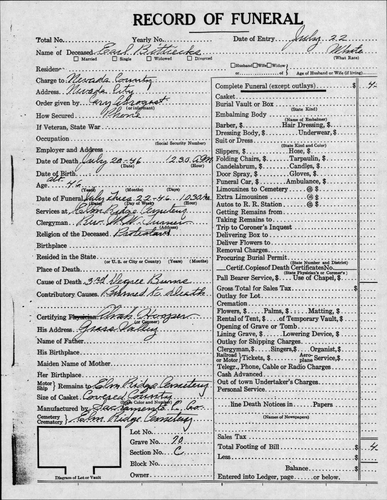 RECORD OF FUNERAL
Total No. Yearly No. Date of Entry July 22
Name of Deceased Earl White
Married Single Widowed Divorced (What Race)
Residence Husband Wife Widow
of Age of Husband or Wife (if living)
Charge to Nevada County
Address Nevada City
Order given by
How Secured Phone
If Veteran, State War
Occupation
(Social Security Number)
Employer and Address
Date of Death July 20-46 2:30 AM
Age 46
(Years) (Months) (Days)
Date of Funeral July 22-46 10:30 AM
Services at Elm Ridge Cemetery
Clergyman Rev. Turner
Religion of the Deceased Protestant
Birthplace
Resided in the State
(or U.S. or City or County) (Years) (Months)
Place of Death
Cause of Death 3rd Degree Burns
Contributory Causes Burned to Death
Certifying Physician Hooper
His Address Grass Valley
Name of Father
His Birthplace
Maiden Name of Mother
Her Birthplace
Motor Ship Remains to Elm Ridge Cemetery
Size of Casket Covered County
(State Color and Number)
Manufactured by Sacramento Co
Cemetery Crematory Elm Ridge Cemetery
Lot No.
Grave No. 70
Section No. C
Block No.
Owner
Diagram of Lot or Vault
Complete Funeral (except outlays) $
Casket
Burial Vault or Box
(State Kind)
Embalming Body
(Name of Embalmer)
Barber, $ Hair Dressing, $
Dressing Body, $ Underwear, $
Suit or Dress
(State Kind and Color)
Slippers, $ Hose, $
Folding Chairs, $ Tarpaulin, $
Candelabrum, $ Candles, $
Door Spray, $ Gloves, $
Funeral Car, $ Ambulance, $
Limousines to Cemetery @ $
Extra Limousines @ $
Autos to R. R. Station @ $
Getting Remains from
Taking Remains to
Trip to Coroner's Inquest
Delivering Box to
Deliver Flowers to
Removal Charges
Procuring Burial Permit
(State Health or Coroner)
Certif. Copies of Death Certificates No.
(State Physician's or Coroner's)
Pall Bearer Service, $ Use of Chapel, $
Gross Total for Sales $
Outlay for Lot
Cremation
Flowers, $ Palms, $ Matting, $
Rental of Tent, $ of Temporary Vault, $
Opening of Grave or Tomb
Lining Grave, $ Lowering Device, $
Outlay for Shipping Charges
Clergyman, $ Singers, $ Organist, $
Railroad or Motor Tickets, $ Aeroplane Service, $
Telegr., Phone, Cable or Radio Charges
Cash Advanced
Out of town Undertaker's Charges
Personal Service
line Death Notices in Papers
(Names of Newspapers)
Sales Tax $
Total Footing of Bill $
Less
Balance $
Entered into Ledger, page or below.